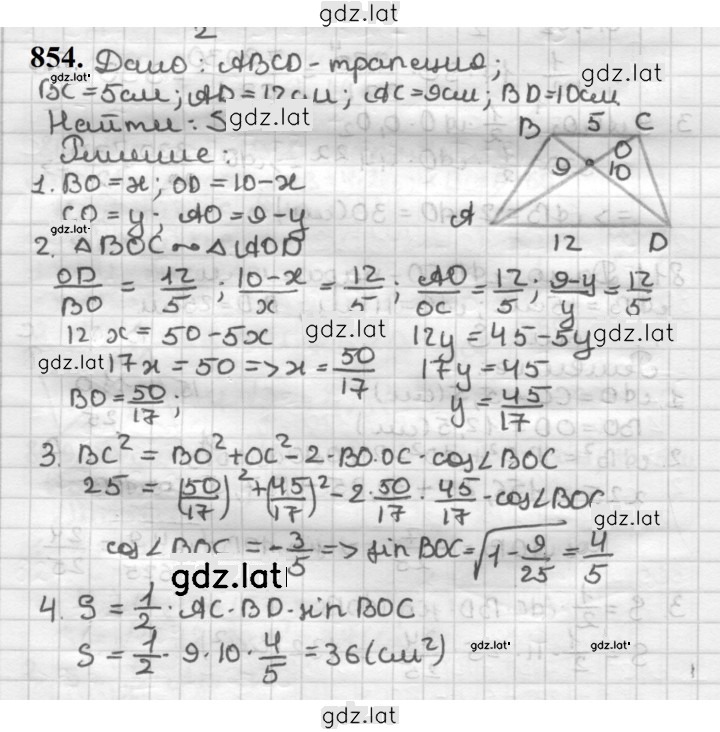 gdz.lat
854. Дано: ABCD - трапеция;
gdz.lat
gdz.lat
BC = 5см; AD = 12см; AC = 9см; BD = 10см
Найти: S
gdz.lat
Решение:
B 5 C
9 O 10
A 12 D
1. BO = x; OD = 10 - x
CO = y; AO = 9 - y
gdz.lat
2. △BOC ~ △AOD
OD/BO = 12/5; (10-x)/x = 12/5; AO/OC = 12/5; (9-y)/y = 12/5
12x = 50 - 5x gdz.lat 12y = 45 - 5y gdz.lat
gdz.lat 17x = 50 => x = 50/17 17y = 45
BO = 50/17; y = 45/17
3. BC² = BO² + OC² - 2·BO·OC·cos∠BOC
25 = (50/17)² + (45/17)² - 2·50/17·45/17·cos∠BOC
gdz.lat
cos∠BOC = -3/5 => sin BOC = √(1 - 9/25) = 4/5
gdz.lat
4. S = 1/2·AC·BD·sin BOC
S = 1/2·9·10·4/5 = 36 (см²)
gdz.lat gdz.lat
gdz.lat